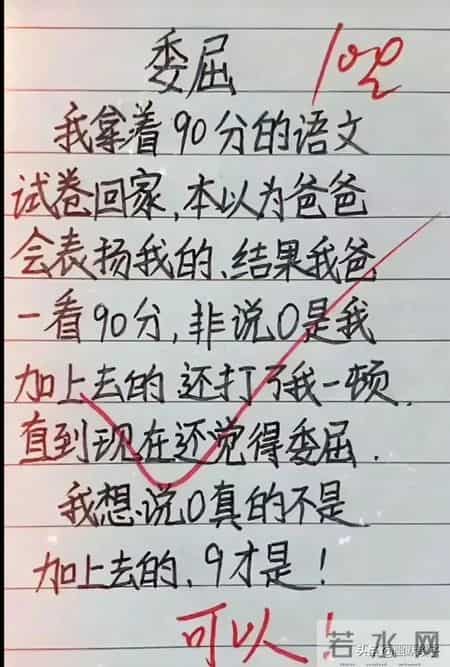 委屈 100
我拿着90分的语文
试卷回家,本以为爸爸
会表扬我的、结果我爸
一看90分,非说0是我
加上去的 还打了我一顿.
直到现在还觉得委屈.
我想说0真的不是
加上去的、9才是!
可以!
若水网